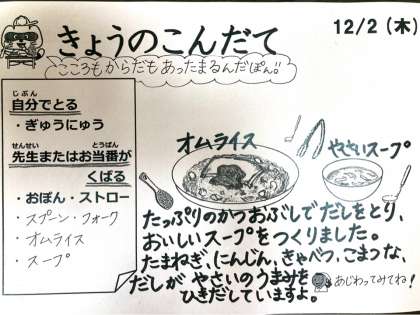 きょうのこんだて
12/2(木)
こころもからだもあったまるんだぽん!!
じぶん
自分でとる
・ぎゅうにゅう
せんせい とうばん
先生またはお当番が
くばる
・おぼん・ストロー
・スプーン・フォーク
・オムライス
・スープ
オムライス
やさいスープ
たっぷりのかつおぶしでだしをとり、
おいしいスープをつくりました。
たまねぎ、にんじん、きゃべつ、こまつな、
だしが やさいのうまみを
ひきだしていますよ。
あじわってみてね!